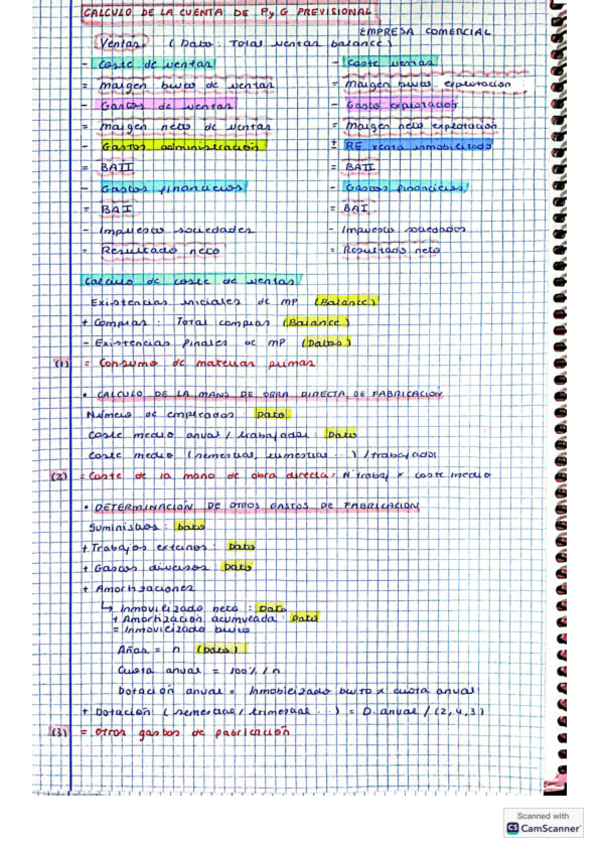 CALCULO DE LA CUENTA DE PyG PREVISIONAL
EMPRESA COMERCIAL
Ventas (Dato: Total ventas balance)
- Coste de ventas
- Coste ventas
= Margen bruto de ventas
= Margen bruto explotación
- Gastos de ventas
- Gasto explotación
= Margen neto de ventas
= Margen neto explotación
- Gastos administración
± RE venta inmobilizado
= BAII
= BAII
- Gastos financieros
- Gastos financieros
= BAI
= BAI
- Impuesto sociedades
- Impuesto sociedades
= Resultado neto
= Resultado neto
Calculo de coste de ventas
Existencias iniciales de MP (Balance)
+ Compras: Total compras (Balance)
- Existencias finales de MP (Datos)
(1) = Consumo de materias primas
• CALCULO DE LA MANO DE OBRA DIRECTA DE FABRICACIÓN
Número de empleados: Dato
Coste medio anual / trabajador: Dato
Coste medio (semestral, trimestral ...) / trabajador
(2) = Coste de la mano de obra directa: Nº trabaj x coste medio
• DETERMINACIÓN DE OTROS GASTOS DE FABRICACIÓN
Suministros: Dato
+ Trabajos externos: Dato
+ Gastos diversos: Dato
+ Amortizaciones
↳ Inmovilizado neto: Dato
+ Amortización acumulada: Dato
= Inmovilizado bruto
Años = n (Dato)
Cuota anual = 100% / n
Dotación anual = Inmobilizado bruto x cuota anual
+ Dotación (semestral / trimestral ...) = D. anual / (2,4,3)
(3) = Otros gastos de fabricación
Scanned with
CS CamScanner